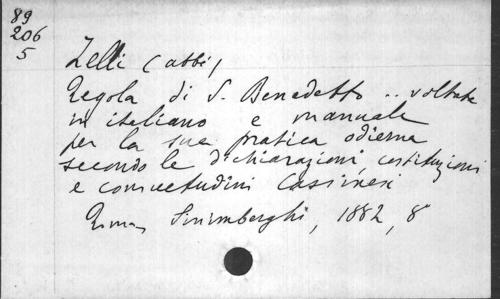 89
206
5
Zelli (abbi)
Regola di S. Benedetto .. voltata
in italiano e manuale
per la sua pratica odierna
secondo le dichiarazioni, costituzioni
e consuetudini Cassinesi
Roma, Sinimberghi, 1882, 8°